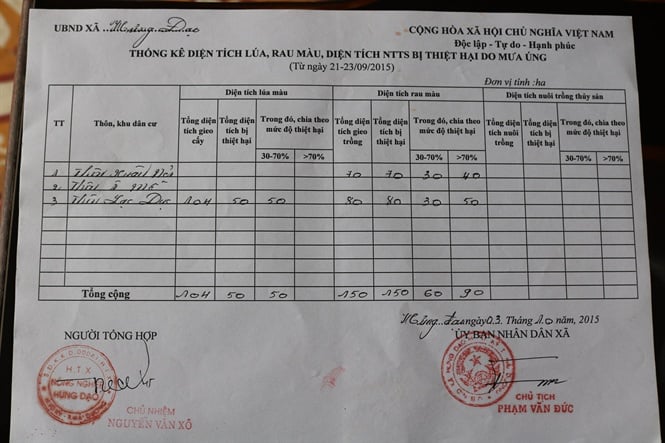 UBND XÃ Hưng Đạo
CỘNG HÒA XÃ HỘI CHỦ NGHĨA VIỆT NAM
Độc lập - Tự do - Hạnh phúc
THỐNG KÊ DIỆN TÍCH LÚA, RAU MÀU, DIỆN TÍCH NTTS BỊ THIỆT HẠI DO MƯA ÚNG
(Từ ngày 21-23/09/2015)
Đơn vị tính :ha
TT Thôn, khu dân cư Diện tích lúa màu Diện tích rau màu Diện tích nuôi trồng thủy sản
Tổng diện tích gieo cấy Tổng diện tích bị thiệt hại Trong đó, chia theo mức độ thiệt hại Tổng diện tích gieo trồng Tổng diện tích bị thiệt hại Trong đó, chia theo mức độ thiệt hại Tổng diện tích nuôi trồng Tổng diện tích bị thiệt hại Trong đó, chia theo mức độ thiệt hại
30-70% >70% 30-70% >70%
1 Thôn Xuân 70 70 30 40
2 Thôn Ô Mễ
3 Thôn Lạc Dục 104 50 50 80 80 30 50
Tổng cộng 104 50 50 150 150 60 90
Hưng Đạo ngày 03 Tháng 10 năm, 2015
NGƯỜI TỔNG HỢP
ỦY BAN NHÂN DÂN XÃ
H.T.X
NÔNG NGHIỆP
HƯNG ĐẠO
CHỦ NHIỆM
NGUYỄN VĂN XÔ
CHỦ TỊCH
PHẠM VĂN ĐỨC